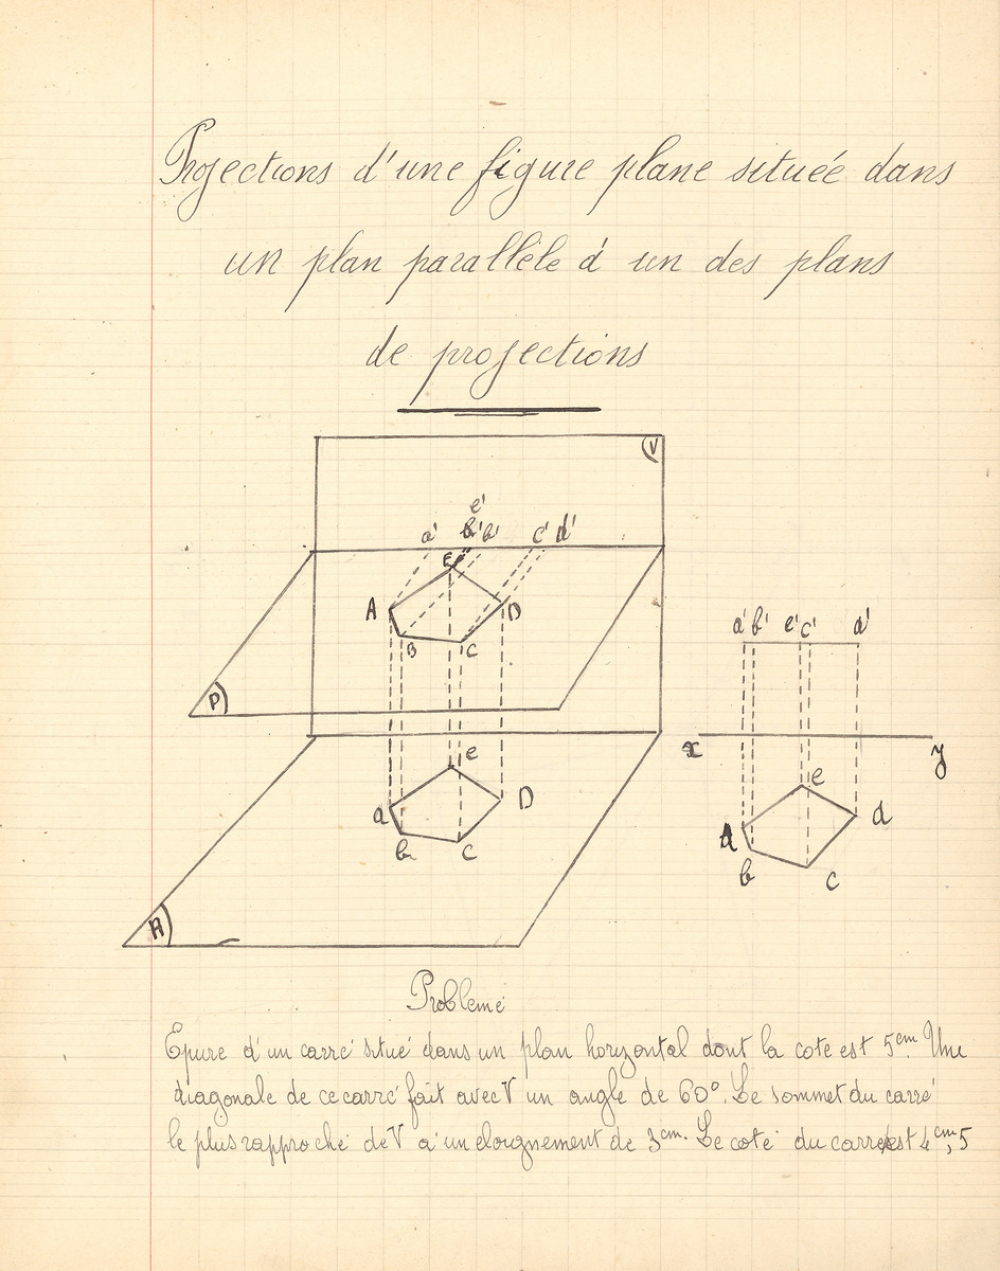 Projections d'une figure plane située dans
un plan parallèle à un des plans
de projections
V
e'
a' b' b' c' d'
E
A D
B C
P
a' b' e' c' d'
x y
e
a D
b c
e
d d
b c
H
Problème
Epure d'un carré situé dans un plan horizontal dont la cote est 5cm. Une
diagonale de ce carré fait avec V un angle de 60°. Le sommet du carré
le plus rapproché de V a un éloignement de 3cm. Le coté du carré est 4cm,5